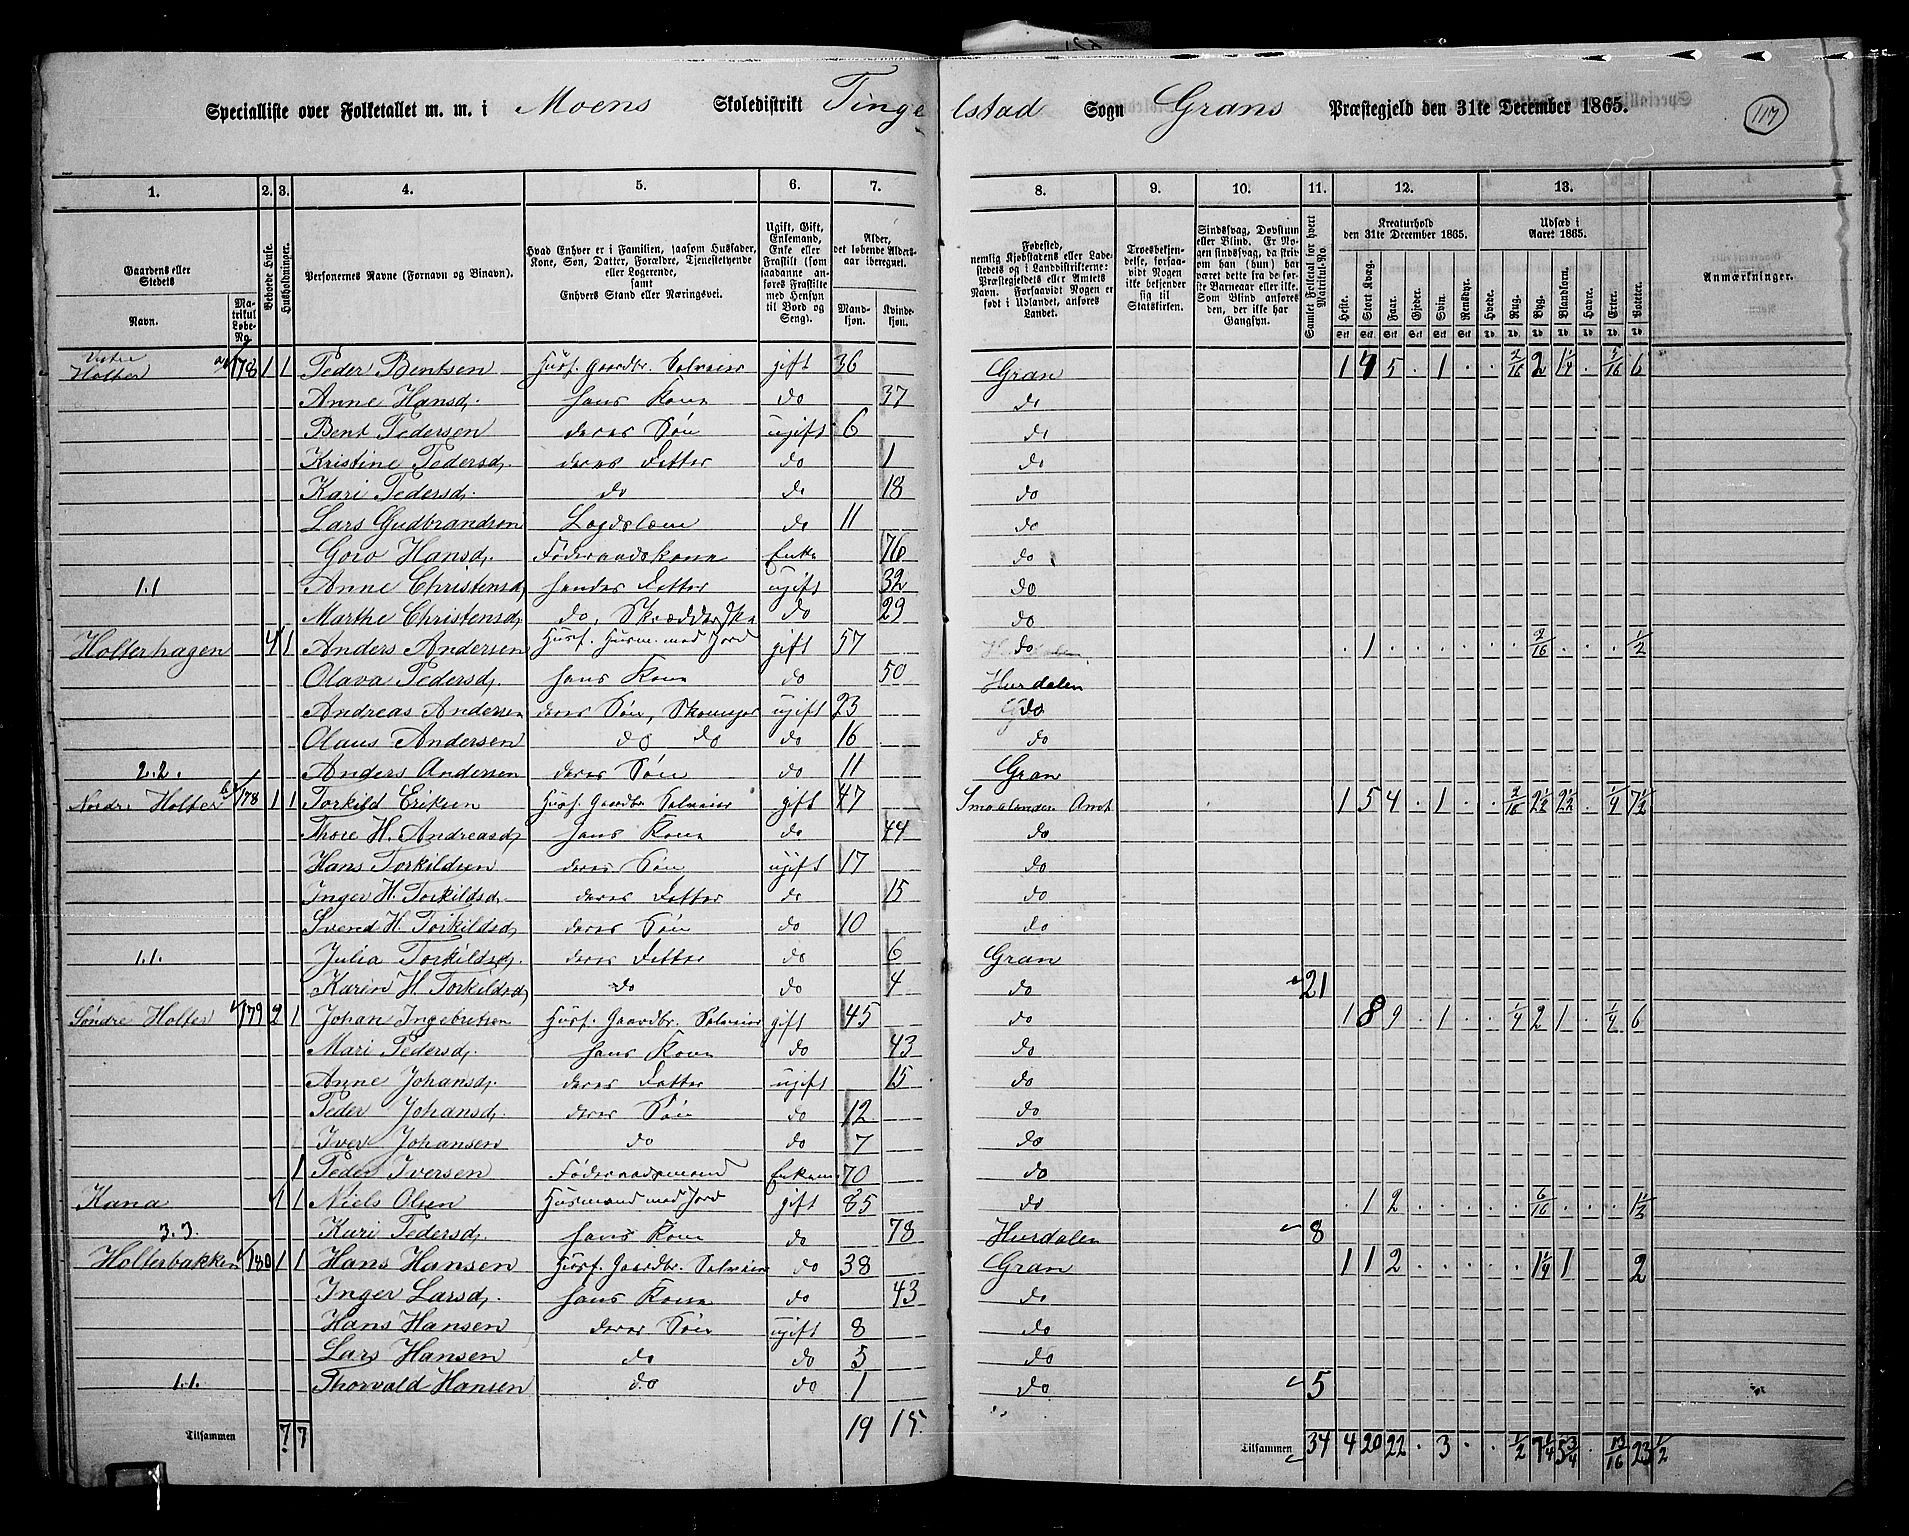 Specialliste over Folketallet m. m. i Moens Skoledistrikt Tingelstad Sogn Grans Præstegjeld den 31te December 1865.
117
1. 2. 3. 4. 5. 6. 7. 8. 9. 10. 11. 12. 13.
Gaardens eller Stedets Navn.
Matrikul Løbe-No.
Beboede Huse.
Husholdninger.
Personernes Navne (Fornavn og Binavn).
Hvad Enhver er i Familien, saasom Husfader, Kone, Søn, Datter, Forældre, Tjenestetyende eller Logerende, samt Enhvers Stand eller Næringsvei.
Ugift, Gift, Enkemand, Enke eller Fraskilt (som saadanne anføres Fraskilte med Hensyn til Bord og Seng).
Alder, det løbende Alders-aar iberegnet.
Mandkjøn. Kvindekjøn.
Fødested, nemlig Kjøbstadens eller Ladestedets og i Landdistrikterne: Præstegjeldets eller Amtets Navn. Forsaavidt Nogen er født i Udlandet, anføres Landet.
Troesbekjendelse, forsaavidt Nogen ikke bekjender sig til Statskirken.
Sindssvag, Døvstum eller Blind. Er Nogen sindssvag, da skrives om han (hun) har været dette fra de første Barneaar eller ikke. Som Blind anføres den, der ikke har Gangsyn.
Samlet Folketal for hvert Matrikul-No.
Kreaturhold den 31te December 1865.
Heste. Stort Kvæg. Faar. Gjeder. Svin. Rensdyr.
Udsæd i Aaret 1865.
Hvede. Rug. Byg. Blandkorn. Havre. Erter. Poteter.
Anmærkninger.
Holter 178 1 1 Peder Bentsen Husf. Gaardbr. Selveier gift 36 Gran 1 7 5 . 1 . . 2/16 2 1 1/4 . 5/16 6
Anne Hansd. hans Kone do 37 do
Bent Pedersen deres Søn ugift 6 do
Kristine Pedersd. deres Datter do 1 do
Kari Pedersd. do do 18 do
Lars Gudbrandsen Lægdslem do 11 do
Goro Hansd. Føderaadskone Enke 76 do
1.1 Anne Christensd. hendes Datter ugift 32 do
Marthe Christensd. do, Skrædderske do 29 do
Holterhagen 1 1 Anders Andersen Husf. Husm. med Jord gift 57 do . 1 . . . . . . 2/16 . . . 1/2
Olava Pedersd. hans Kone do 50 Hurdalen
Andreas Andersen deres Søn, Skomager ugift 23 do
Olaus Andersen do do do 16 do
2.2. Anders Andersen deres Søn do 11 Gran
Nordre Holter 178 1 1 Torkild Eriksen Husf. Gaardbr. Selveier gift 47 Smaalenenes Amt 1 5 4 . 1 . . 2/16 2 1/2 2 1/2 . 1/4 7 1/2
Thore H. Andreasd. hans Kone do 44 do
Hans Torkildsen deres Søn ugift 17 do
Inger H. Torkildsd. deres Datter do 15 do
Svend H. Torkildsd. deres Søn do 10 do
1.1. Julia Torkildsd. deres Datter do 6 Gran
Karen H Torkildsd. do do 4 do 21
Søndre Holter 179 2 1 Johan Ingebretsen Husf. Gaardbr. Selveier gift 45 do 1 8 9 . 1 . . 1/4 2 1 . 1/4 6
Mari Pedersd. hans Kone do 43 do
Anne Johansd. deres Datter ugift 15 do
Peder Johansd. deres Søn do 12 do
Iver Johansen do do 7 do
1 Peder Iversen Føderaadsmand Enkem. 70 do
Kana 1 1 Niels Olsen Husmand med Jord gift 85 do . 1 2 . . . . . 6/16 . . . 1 1/2
3.3. Kari Pedersd. hans Kone do 78 Hurdalen 8
Holterbakken 180 1 1 Hans Hansen Husf. Gaardbr. Selveier do 38 Gran 1 1 2 . . . . . 1 1/4 1 2
Inger Larsd. hans Kone do 43 do
Hans Hansen deres Søn ugift 8 do
Lars Hansen do do 5 do
1.1. Thorvald Hansen do do 1 do 5
Tilsammen 7 7 19 15. Tilsammen 34 4 20 22 . 3 . . 1/2 7 1/4 5 3/4 . 13/16 23 1/2